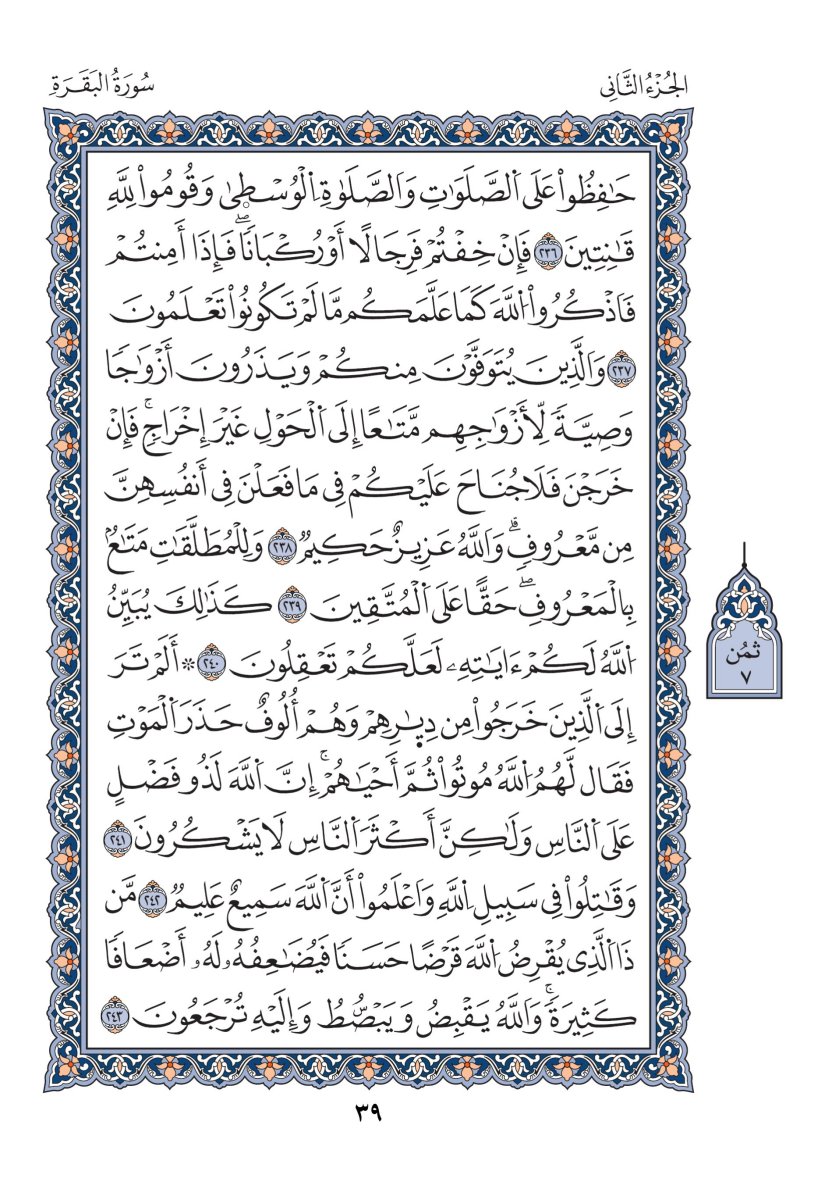 الجُزْءُ الثَّانِي
سُورَةُ البَقَرَةِ
حَٰفِظُواْ عَلَى اَ۬لصَّلَوَٰتِ وَالصَّلَوٰةِ اِ۬لْوُسْط۪ىٰ وَقُومُواْ لِلهِ
قَٰنِتِينَ ٢٣٦ فَإِنْ خِفْتُمْ فَرِجَالًا أَوْ رُكْبَانٗاۖ فَإِذَا أَمِنتُمْ
فَاذْكُرُواْ اُ۬للَّهَ كَمَا عَلَّمَكُم مَّا لَمْ تَكُونُواْ تَعْلَمُونَ
٢٣٧ وَالَّذِينَ يُتَوَفَّوْنَ مِنكُمْ وَيَذَرُونَ أَزْوَٰجٗا
وَصِيَّةٗ لِّأَزْوَٰجِهِم مَّتَٰعًا إِلَى اَ۬لْحَوْلِ غَيْرَ إِخْرَاجٖۚ فَإِنْ
خَرَجْنَ فَلَا جُنَاحَ عَلَيْكُمْ فِي مَا فَعَلْنَ فِي أَنفُسِهِنَّ
مِن مَّعْرُوفٖۗ وَاللَّهُ عَزِيزٌ حَكِيمٞ ٢٣٨ وَلِلْمُطَلَّقَٰتِ مَتَٰعُۢ
بِالْمَعْرُوفِۖ حَقًّا عَلَى اَ۬لْمُتَّقِينَ ٢٣٩ كَذَٰلِكَ يُبَيِّنُ
اُ۬للَّهُ لَكُمْ ءَايَٰتِهِۦ لَعَلَّكُمْ تَعْقِلُونَ ٢٤٠ ۞ أَلَمْ تَرَ
إِلَى اَ۬لَّذِينَ خَرَجُواْ مِن دِيٰ۪رِهِمْ وَهُمْ أُلُوفٌ حَذَرَ اَ۬لْمَوْتِ
فَقَال لَّهُمُ اُ۬للَّهُ مُوتُواْ ثُمَّ أَحْيَٰهُمْۚ إِنَّ اَ۬للَّهَ لَذُو فَضْلٍ
عَلَى اَ۬لنَّاسِ وَلَٰكِنَّ أَكْثَرَ اَ۬لنَّاسِ لَا يَشْكُرُونَ ٢٤١
وَقَٰتِلُواْ فِي سَبِيلِ اِ۬للَّهِ وَاعْلَمُواْ أَنَّ اَ۬للَّهَ سَمِيعٌ عَلِيمٞ ٢٤٢ مَّن
ذَا اَ۬لَّذِي يُقْرِضُ اُ۬للَّهَ قَرْضًا حَسَنٗا فَيُضَٰعِفُهُۥ لَهُۥ أَضْعَافٗا
كَثِيرَةٗۚ وَاللَّهُ يَقْبِضُ وَيَبْصُۜطُ وَإِلَيْهِ تُرْجَعُونَ ٢٤٣
ثُمُن
٧
٣٩